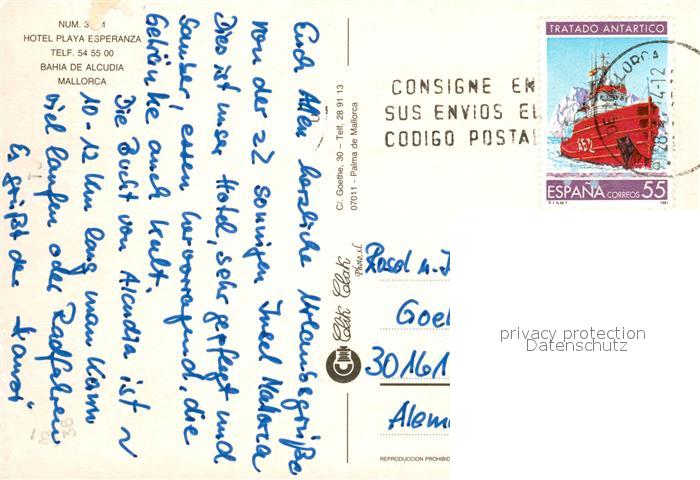 NUM. 3
HOTEL PLAYA ESPERANZA
TELF. 54 55 00
BAHIA DE ALCUDIA
MALLORCA
Euch Allen herzliche Urlaubsgrüße
von der 22 sonnigen Insel Malorca
Dies ist unser Hotel, sehr gepflegt und
sauber, essen hervorragend, die
Getränke auch kult.
Die Bucht von Alcudia ist ~
10-12 km lang man kann
viel laufen oder Radfahren
Es grüßt der
C/. Goethe, 30 – Telf. 28 91 13
07011 - Palma de Mallorca
Clik Clak
Photo, s.l.
CONSIGNE EN
SUS ENVIOS EL
CODIGO POSTAL
TRATADO ANTARTICO
ESPAÑA CORREOS 55
1991
Rosel u.
Goe
30161
Alem
privacy protection
Datenschutz
REPRODUCCION PROHIBID